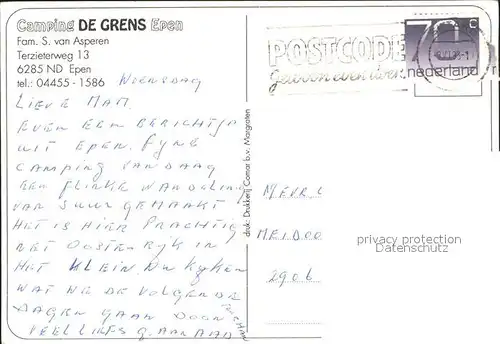 Camping DE GRENS Epen
Fam. S. van Asperen
Terzieterweg 13
6285 ND Epen
tel.: 04455 - 1586
WOENSDAG
LIEVE MAM
EVEN EEN BERICHTJE
UIT EPEN. FYNE
CAMPING VANDAAG
EEN FLINKE WANDELING
VAN 5 UUR GEMAAKT
HET IS HIER PRACHTIG
NET OOSTENRYK IN
HET KLEIN. DW KYKEN
WAT WE DE VOLGENDE
DAGEN GAAN DOEN
VEEL LIEFS
druk: Drukkerij Comar b.v. Margraten
POSTCODE
gewoon even doen
70 c
nederland
MEVR
MEIDOO
2906
privacy protection
Datenschutz